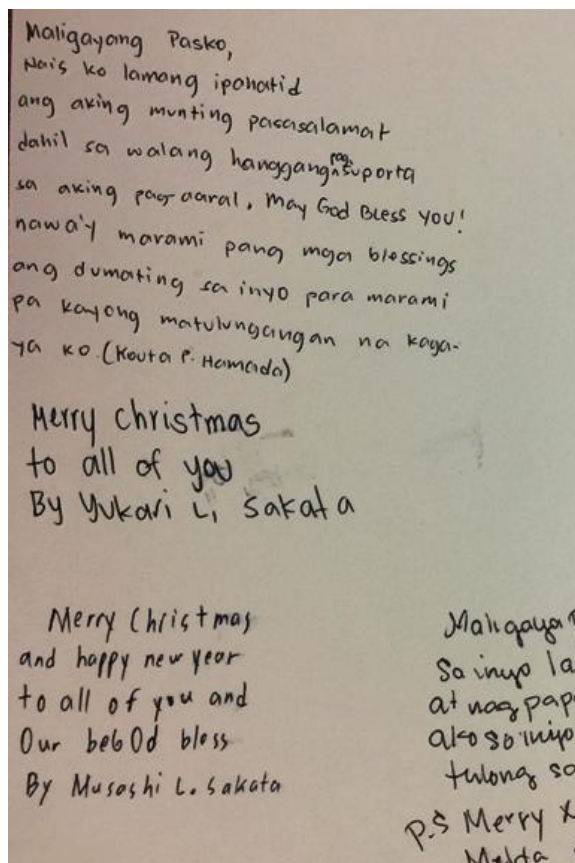 Maligayang Pasko,
Nais ko lamang ipahatid
ang aking munting pasasalamat
dahil sa walang hanggang pagsuporta
sa aking pag-aaral, May God Bless you!
nawa'y marami pang mga blessings
ang dumating sa inyo para marami
pa kayong matulungangan na kaga-
ya ko. (Kouta P. Hamada)
Merry christmas
to all of you
By Yukari L, Sakata
Merry Christmas
and happy new year
to all of you and
Our beb Od bless
By Musashi L. Sakata
Maligaya
Sa inyo la
at nag pap
ako sa inyo
tulong sa
P.S Merry X